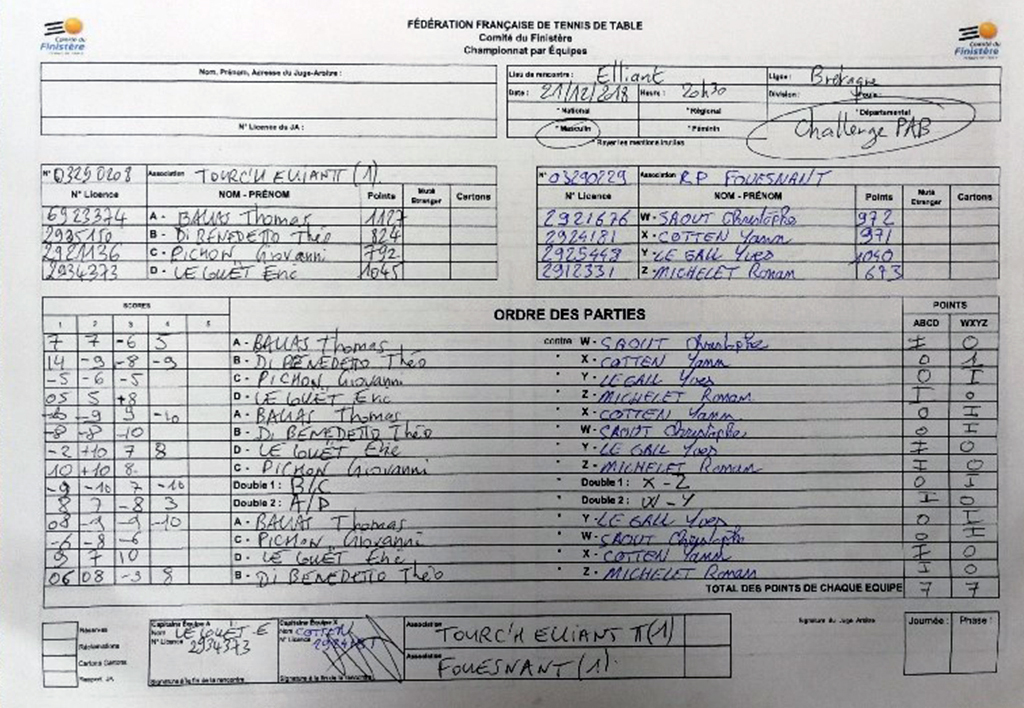 Comité du Finistère
FÉDÉRATION FRANÇAISE DE TENNIS DE TABLE
Comité du Finistère
Championnat par Équipes
Comité du Finistère
Nom, Prénom, Adresse du Juge-Arbitre :
N° Licence du JA :
Lieu de rencontre : Elliant Ligue : Bretagne
Date : 21/12/2018 Heure : 20h30 Division : Poule :
* National * Régional * Départemental
* Masculin * Féminin Challenge PAB
* Rayer les mentions inutiles
N° 03290208 Association TOURC'H ELLIANT TT (1)
N° Licence NOM - PRÉNOM Points Muté Etranger Cartons
6923374 A - BALLAS Thomas 1127
2935150 B - Di BENEDETTO Théo 824
2921136 C - PICHON Giovanni 792
2934373 D - LE GOUËT Eric 1045
N° 03290229 Association RP FOUESNANT
N° Licence NOM - PRÉNOM Points Muté Etranger Cartons
2921676 W - SAOUT Christophe 972
2924181 X - COTTEN Yann 971
2925448 Y - LE GALL Yves 1040
2912331 Z - MICHELET Ronan 673
SCORES ORDRE DES PARTIES POINTS
1 2 3 4 5 ABCD WXYZ
7 7 -6 5 A - BALLAS Thomas contre W - SAOUT Christophe 1 0
14 -9 -8 -9 B - Di BENEDETTO Théo " X - COTTEN Yann 0 1
-5 -6 -5 C - PICHON Giovanni " Y - LE GALL Yves 0 1
05 5 +8 D - LE GOUËT Eric " Z - MICHELET Ronan 1 0
-6 -9 9 -10 A - BALLAS Thomas " X - COTTEN Yann 0 1
-8 -8 -10 B - Di BENEDETTO Théo " W - SAOUT Christophe 0 1
-2 +10 7 8 D - LE GOUËT Eric " Y - LE GALL Yves 1 0
10 +10 8 C - PICHON Giovanni " Z - MICHELET Ronan 1 0
-9 -10 7 -10 Double 1 : B/C " Double 1 : X - Z 0 1
8 7 -8 3 Double 2 : A/D " Double 2 : W - Y 1 0
08 -9 -9 -10 A - BALLAS Thomas " Y - LE GALL Yves 0 1
-6 -8 -6 C - PICHON Giovanni " W - SAOUT Christophe 0 1
9 7 10 D - LE GOUËT Eric " X - COTTEN Yann 1 0
06 08 -3 8 B - Di BENEDETTO Théo " Z - MICHELET Ronan 1 0
TOTAL DES POINTS DE CHAQUE EQUIPE 7 7
Réserves
Réclamations
Cartons Cartons
Rapport JA
Capitaine Équipe A
Nom LE GOUET E
N° Licence 2934373
Signature à la fin de la rencontre
Capitaine Équipe X
Nom COTTEN
N° Licence 2924181
Signature à la fin de la rencontre
Association TOURC'H ELLIANT TT (1)
Association FOUESNANT (1).
Signature du Juge Arbitre
Journée : Phase :